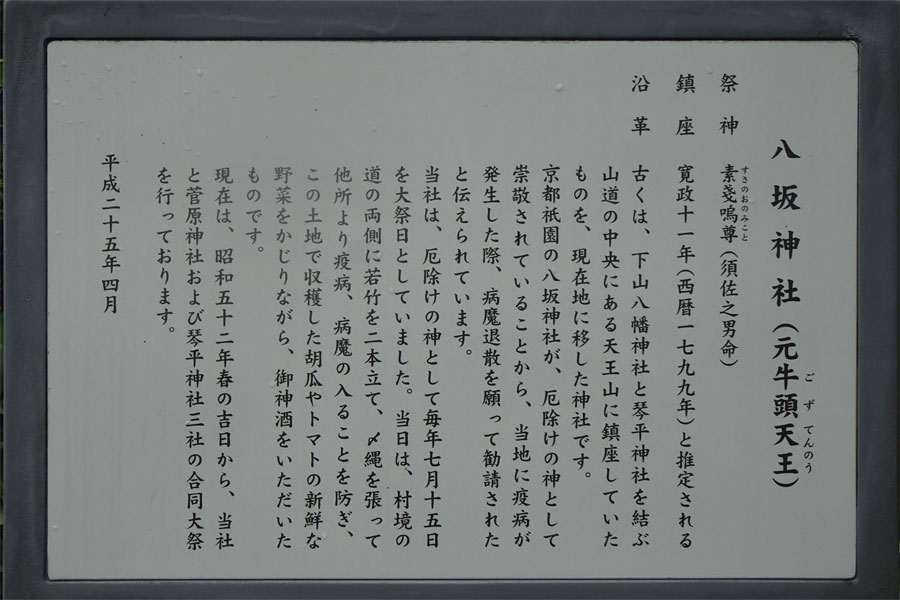 八坂神社(元牛頭天王)
ごずてんのう
祭神 素戔嗚尊(須佐之男命)
すさのおのみこと
鎮座 寛政十一年(西暦一七九九年)と推定される
沿革 古くは、下山八幡神社と琴平神社を結ぶ
山道の中央にある天王山に鎮座していた
ものを、現在地に移した神社です。
京都祇園の八坂神社が、厄除けの神として
崇敬されていることから、当地に疫病が
発生した際、病魔退散を願って勧請された
と伝えられています。
当社は、厄除けの神として毎年七月十五日
を大祭日としていました。当日は、村境の
道の両側に若竹を二本立て、〆縄を張って
他所より疫病、病魔の入ることを防ぎ、
この土地で収穫した胡瓜やトマトの新鮮な
野菜をかじりながら、御神酒をいただいた
ものです。
現在は、昭和五十二年春の吉日から、当社
と菅原神社および琴平神社三社の合同大祭
を行っております。
平成二十五年四月